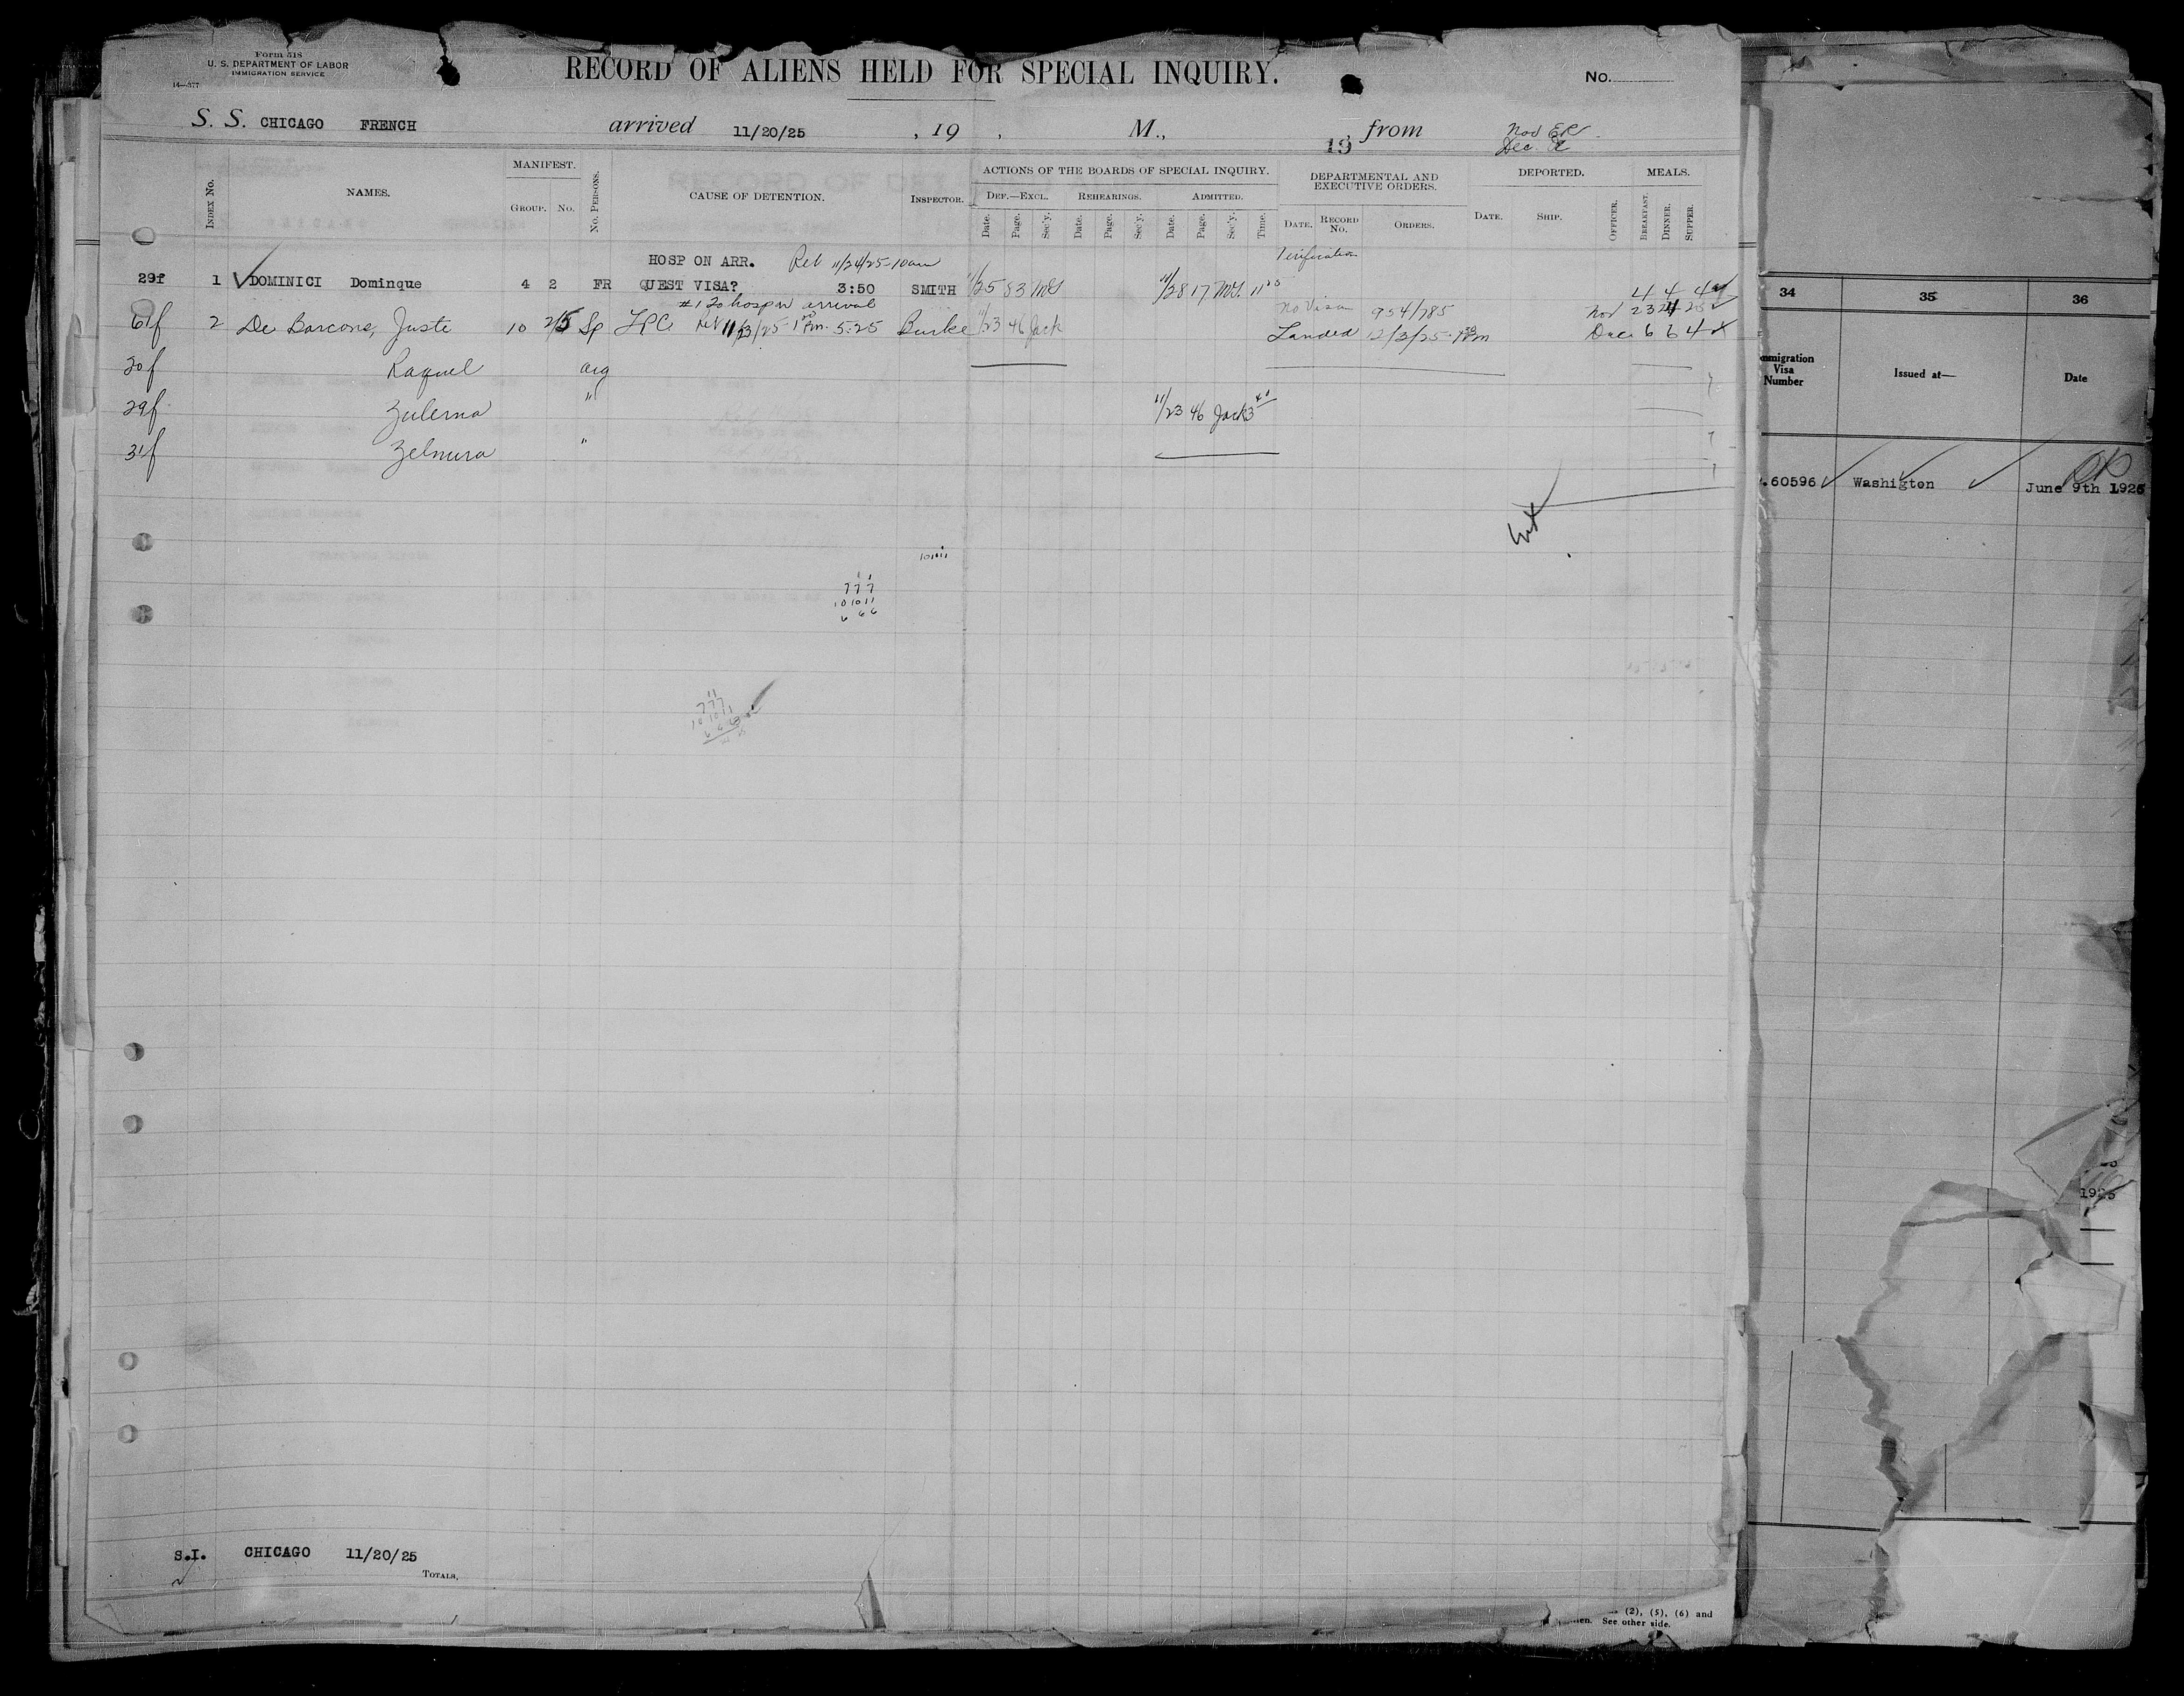 Form 518
U. S. DEPARTMENT OF LABOR
IMMIGRATION SERVICE
14—377
RECORD OF ALIENS HELD FOR SPECIAL INQUIRY.
No.
S. S. CHICAGO FRENCH arrived 11/20/25 , 19 , M., 19 , from
Nov ER
Dec.
INDEX No.
NAMES.
MANIFEST.
GROUP. No.
No. PERSONS.
CAUSE OF DETENTION.
INSPECTOR.
ACTIONS OF THE BOARDS OF SPECIAL INQUIRY.
DEF.—EXCL. REHEARINGS. ADMITTED.
Date. Page. Sec'y. Date. Page. Sec'y. Date. Page. Sec'y. Time.
DEPARTMENTAL AND EXECUTIVE ORDERS.
DATE. RECORD No. ORDERS.
DEPORTED.
DATE. SHIP. OFFICER.
MEALS.
BREAKFAST. DINNER. SUPPER.
HOSP ON ARR. Rel 11/24/25-10am Verification
29f 1 DOMINICI Dominque 4 2 FR QUEST VISA? 3:50 SMITH 11/25 83 11/28 17 4 4 4
#1 to hosp on arrival No Visa 954/785 Nov 23 24 25
61f 2 De Barcons, Juste 10 2/5 Sp LPC Rel 11/23/25-1 pm. 5:25 Burke 11/23 46 Jack Landed 12/3/25- pm Dec 6 6 4
30f Raquel arg
29f Zulema " 11/23 46 Jack 3 40
31f Zelmira "
Ext
10 10 11
7 7 7
10 10 11
6 6 6
7 7 7
10 10 11
S.I. CHICAGO 11/20/25
TOTALS,
(2), (5), (6) and
See other side.
34 35 36
Immigration Visa Number
Issued at—
Date
.60596 Washigton June 9th 1925
1925